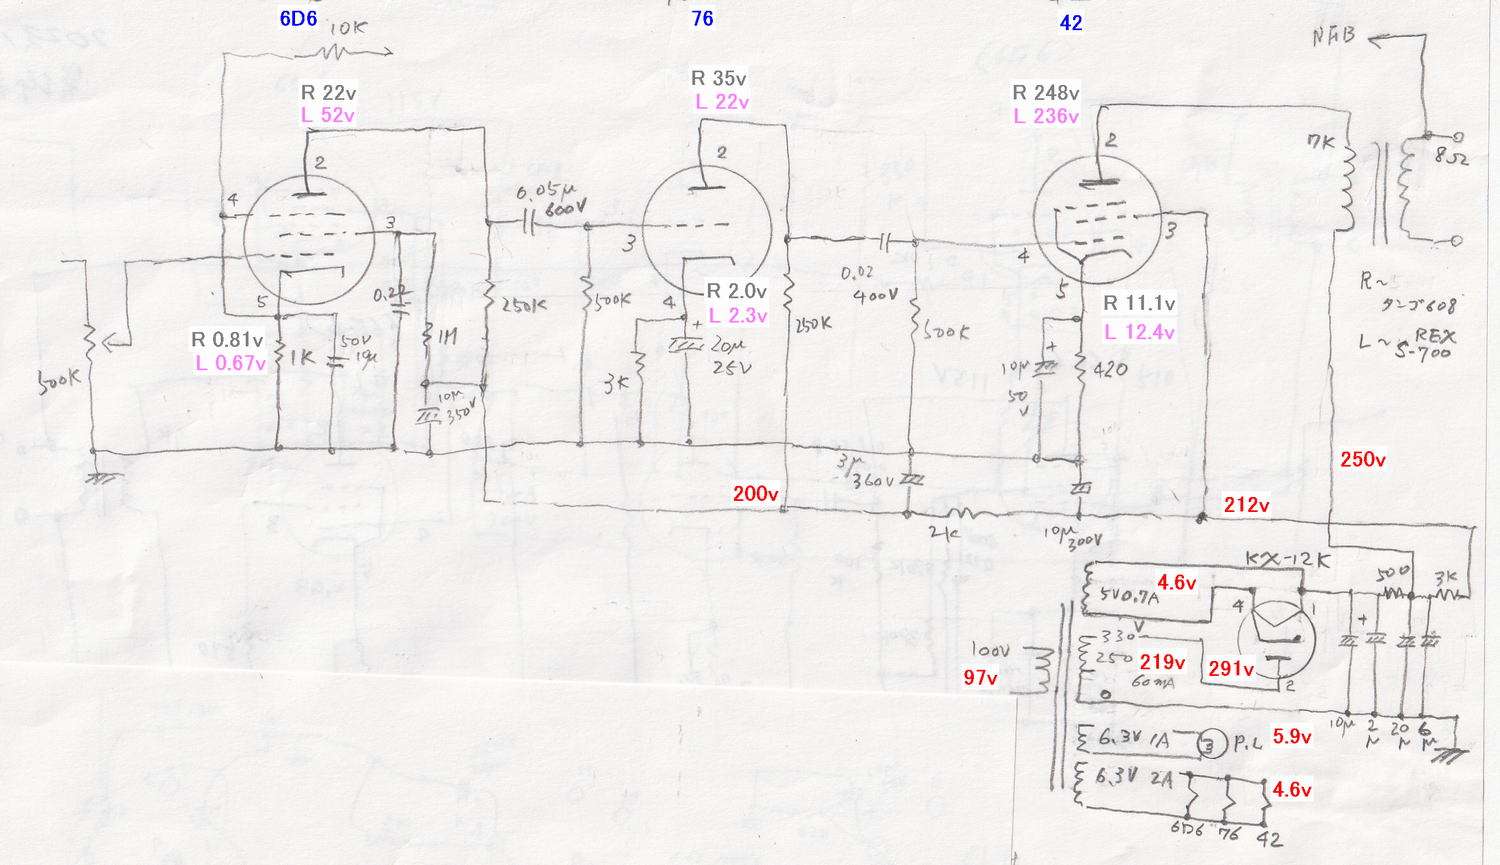 6D6
76
42
10K
NFB
R 22v
L 52v
R 35v
L 22v
R 248v
L 236v
2
2
2
7K
8Ω
4
3
0.05μ
600V
3
4
3
5
4
5
0.22
0.02
400V
R 2.0v
L 2.3v
R 11.1v
L 12.4v
R 0.81v
L 0.67v
1K
50V
10μ
1M
250K
500K
250K
500K
20μ
25V
3K
10μ
350V
10μ
50
V
420
500K
R~
タンゴ608
L~ REX
S-700
3μ
360V
200v
212v
250v
2K
10μ
300V
KX-12K
5V0.7A
4.6v
4
1
500
3K
+
V
330
250
219v
60mA
291v
2
100V
97v
0
10μ
2
μ
20
μ
6
μ
6.3V 1A
3
P.L
5.9v
6.3V 2A
4.6v
6D6
76
42